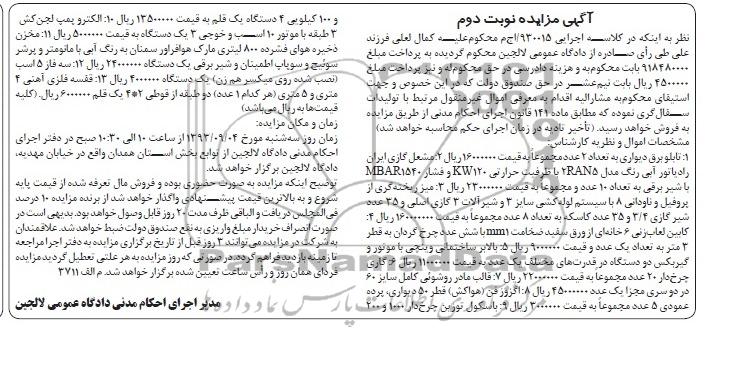 آگهی مزایده نوبت دوم
نظر به اینکه در کلاسه اجرایی ۹۳۰۰۱۵/اج‌م محکوم‌علیه کمال لعلی فرزند
علی طی رأی صادره از دادگاه عمومی لالجین محکوم گردیده به پرداخت مبلغ
۹۱۸۴۸۰۰۰۰ بابت محکوم‌به و هزینه دادرسی در حق محکوم‌له و نیز پرداخت مبلغ
۴۵۰۰۰۰۰ ریال بابت نیم‌عشر در حق صندوق دولت که در این خصوص و جهت
استیفای محکوم‌به مشارالیه اقدام به معرفی اموال غیرمنقول مرتبط با تولیدات
سفال‌گری نموده که مطابق ماده ۱۴۱ قانون اجرای احکام مدنی از طریق مزایده
به فروش خواهد رسید. (تأخیر تادیه در زمان اجرای حکم محاسبه خواهد شد)
مشخصات اموال و نظریه کارشناس:
۱: تابلو برق دیواری به تعداد ۲ عدد مجموعاً به قیمت ۱۶۰۰۰۰۰۰ ریال ۲: مشعل گازی ایران
رادیاتور آبی رنگ مدل ۲RAN۵ با ظرفیت حرارتی KW۱۲۰ و فشار MBAR۱۵۴۰
با شیر برقی به تعداد ۱۰ عدد و مجموعاً به قیمت ۲۳۰۰۰۰۰۰ ریال ۳: میز ریخته‌گری از
پروفیل و ناودانی ۸ با سیستم لوله کشی سایز ۳ و شیرآلات ۳ گازی اصلی و ۳۵ عدد
شیر گازی ۳/۴ و ۳۵ عدد کاسکو به تعداد ۸ عدد مجموعاً به قیمت ۱۶۰۰۰۰۰۰۰ ریال ۴:
کابین لعاب‌زنی ۶ خانه‌ای از ورق سفید ضخامت ۱mm با شش عدد چرخ گردان به قطر
۳ متر به تعداد یک عدد و قیمت ۹۰۰۰۰۰۰ ریال ۵: بالابر ساختمانی وینچی با موتور و
گیربکس دو دستگاه در قدرت‌های مختلف یک عدد به قیمت ۱۱۰۰۰۰۰۰ ریال ۶: گاری
چرخ‌دار ۲۰ عدد مجموعاً به قیمت ۱۲۰۰۰۰۰۰ ریال ۷: قالب مادر روشوئی کامل سایز ۶۰
در دو سری مجزا یک عدد ۴۵۰۰۰۰۰۰ ریال ۸: اگزوز فن (هواکش) قطر ۵۰ دیواری، پرده
عمودی ۵ عدد مجموعاً به قیمت ۳۰۰۰۰۰۰ ریال ۹: باسکول توزین چرخ‌دار ۱۰۰۰ و ۲۰۰
و ۱۰۰ کیلویی ۴ دستگاه یک قلم به قیمت ۱۳۵۰۰۰۰۰ ریال ۱۰: الکترو پمپ لجن‌کش
۳ طبقه با موتور ۱۰ اسب و خوجی ۳ یک دستگاه به قیمت ۵۰۰۰۰۰۰ ریال ۱۱: مخزن
ذخیره هوای فشرده ۸۰۰ لیتری مارک هوافراور سمنان به رنگ آبی با مانومتر و پرشر
سوئیچ و سوپاپ اطمینان و شیر برقی یک دستگاه ۲۴۰۰۰۰۰۰ ریال ۱۲: سه فاز ۵ اسب
(نصب شده روی میکسر هم زن) یک دستگاه ۴۰۰۰۰۰۰ ریال ۱۳: قفسه فلزی آهنی ۴
متری و ۵ متری (هر کدام ۱ عدد) دو طبقه از قوطی ۲*۴ یک قلم ۶۰۰۰۰۰۰ ریال. (کلیه
قیمت‌ها به ریال می‌باشد)
زمان و مکان مزایده:
زمان روز سه‌شنبه مورخ ۱۳۹۳/۰۹/۰۴ از ساعت ۱۰ الی ۱۰:۳۰ صبح در دفتر اجرای
احکام مدنی دادگاه لالجین از توابع بخش استان همدان واقع در خیابان مهدیه،
دادگاه لالجین برگزار خواهد شد.
توضیح اینکه مزایده به صورت حضوری بوده و فروش مال تعرفه شده از قیمت پایه
شروع و به بالاترین قیمت پیشنهادی واگذار خواهد شد از برنده مزایده ۱۰ درصد
فی‌المجلس دریافت و الباقی ظرف مدت ۲۰ روز قابل وصول خواهد بود. بدیهی است در
صورت انصراف خریدار مبلغ واریزی به نفع صندوق دولت ضبط خواهد شد. علاقمندان
به شرکت در مزایده می‌توانند ۳ روز قبل از تاریخ برگزاری مزایده به دفتر اجرا مراجعه
تا زمینه بازدید فراهم گردد. در صورتی که روز مزایده به هر علتی تعطیل گردید مزایده
فردای همان روز و رأس ساعت تعیین شده برگزار خواهد شد. م الف ۳۷۱۱
مدیر اجرای احکام مدنی دادگاه عمومی لالجین